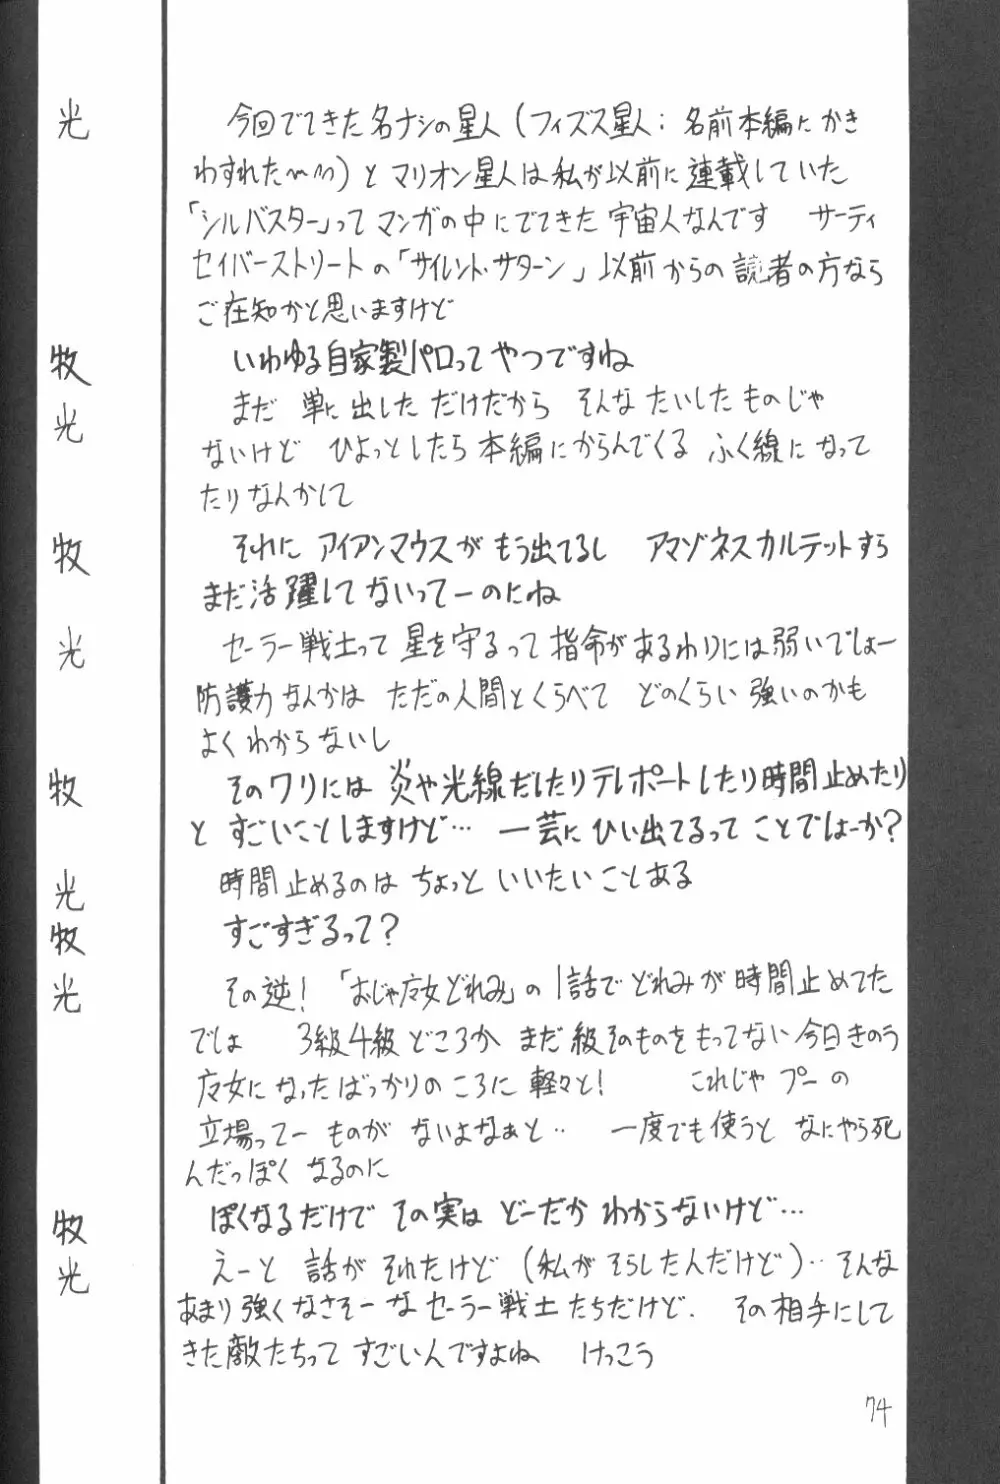 光 今回でてきた名ナシの星人(フィズス星人:名前本編にかき
わすれた〜〜)とマリオン星人は私が以前に連載していた
「シルバスター」ってマンガの中にでてきた宇宙人なんです サーティ
セイバーストリートの「サイレント・サターン」以前からの読者の方なら
ご在知かと思いますけど
牧 いわゆる自家製パロってやつですね
光 まだ 単に出しただけだから そんなたいしたものじゃ
ないけど ひょっとしたら本編にからんでくる ふく線になって
たりなんかして
牧 それに アイアンマウスがもう出てるし アマゾネスカルテットすら
まだ活躍してないってーのにね
光 セーラー戦士って星を守るって指命があるわりには弱いでしょー
防護力なんかは ただの人間とくらべて どのくらい強いのかも
よくわからないし
牧 そのワリには炎や光線だしたりテレポートしたり時間止めたり
と すごいことしますけど… 一芸にひい出てるってことでしょーか?
光 時間止めるのは ちょっと いいたいことある
牧 すごすぎるって?
光 その逆!「おじゃ魔女どれみ」の1話でどれみが時間止めてた
でしょ 3級4級どころか まだ級そのものをもってない今日きのう
魔女になったばっかりのころに軽々と! これじゃ プーの
立場ってー ものが ないよなぁと‥ 一度でも使うと なにやら死
んだっぽくなるのに
牧 ぽくなるだけで その実は どーだか わからないけど…
光 えーと 話が それたけど(私がそらしたんだけど)‥そんな
あまり強くなさそーなセーラー戦士たちだけど. その相手にして
きた敵たちって すごいんですよね けっこう
74